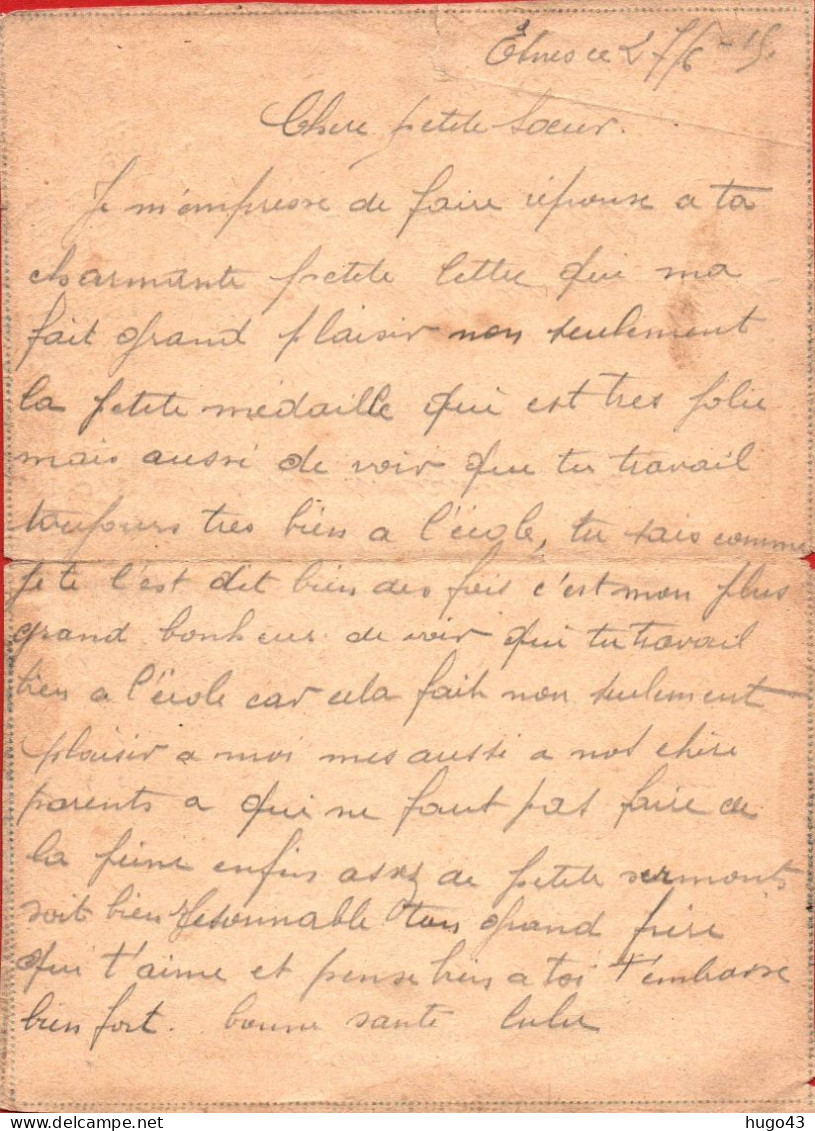 ce 27/6-15.
Chere petite Soeur.
Je m'empresse de faire réponse a ta
charmante petite lettre qui ma
fait grand plaisir non seulement
la petite médaille qui est tres jolie
mais aussi de voir que tu travail
toujours tres bien a l'école, tu sais comme
je te l'est dit bien des fois c'est mon plus
grand bonheur de voir que tu travail
bien a l'école car cela fait non seulement
plaisir a moi mes aussi a nos chére
parents a qui ne faut pas faire de
la peine enfin assez de petite sermonts
soit bien resonnable ton grand frère
qui t'aime et pense bien a toi t'embrasse
bien fort. bonne santé lulu
hugo43